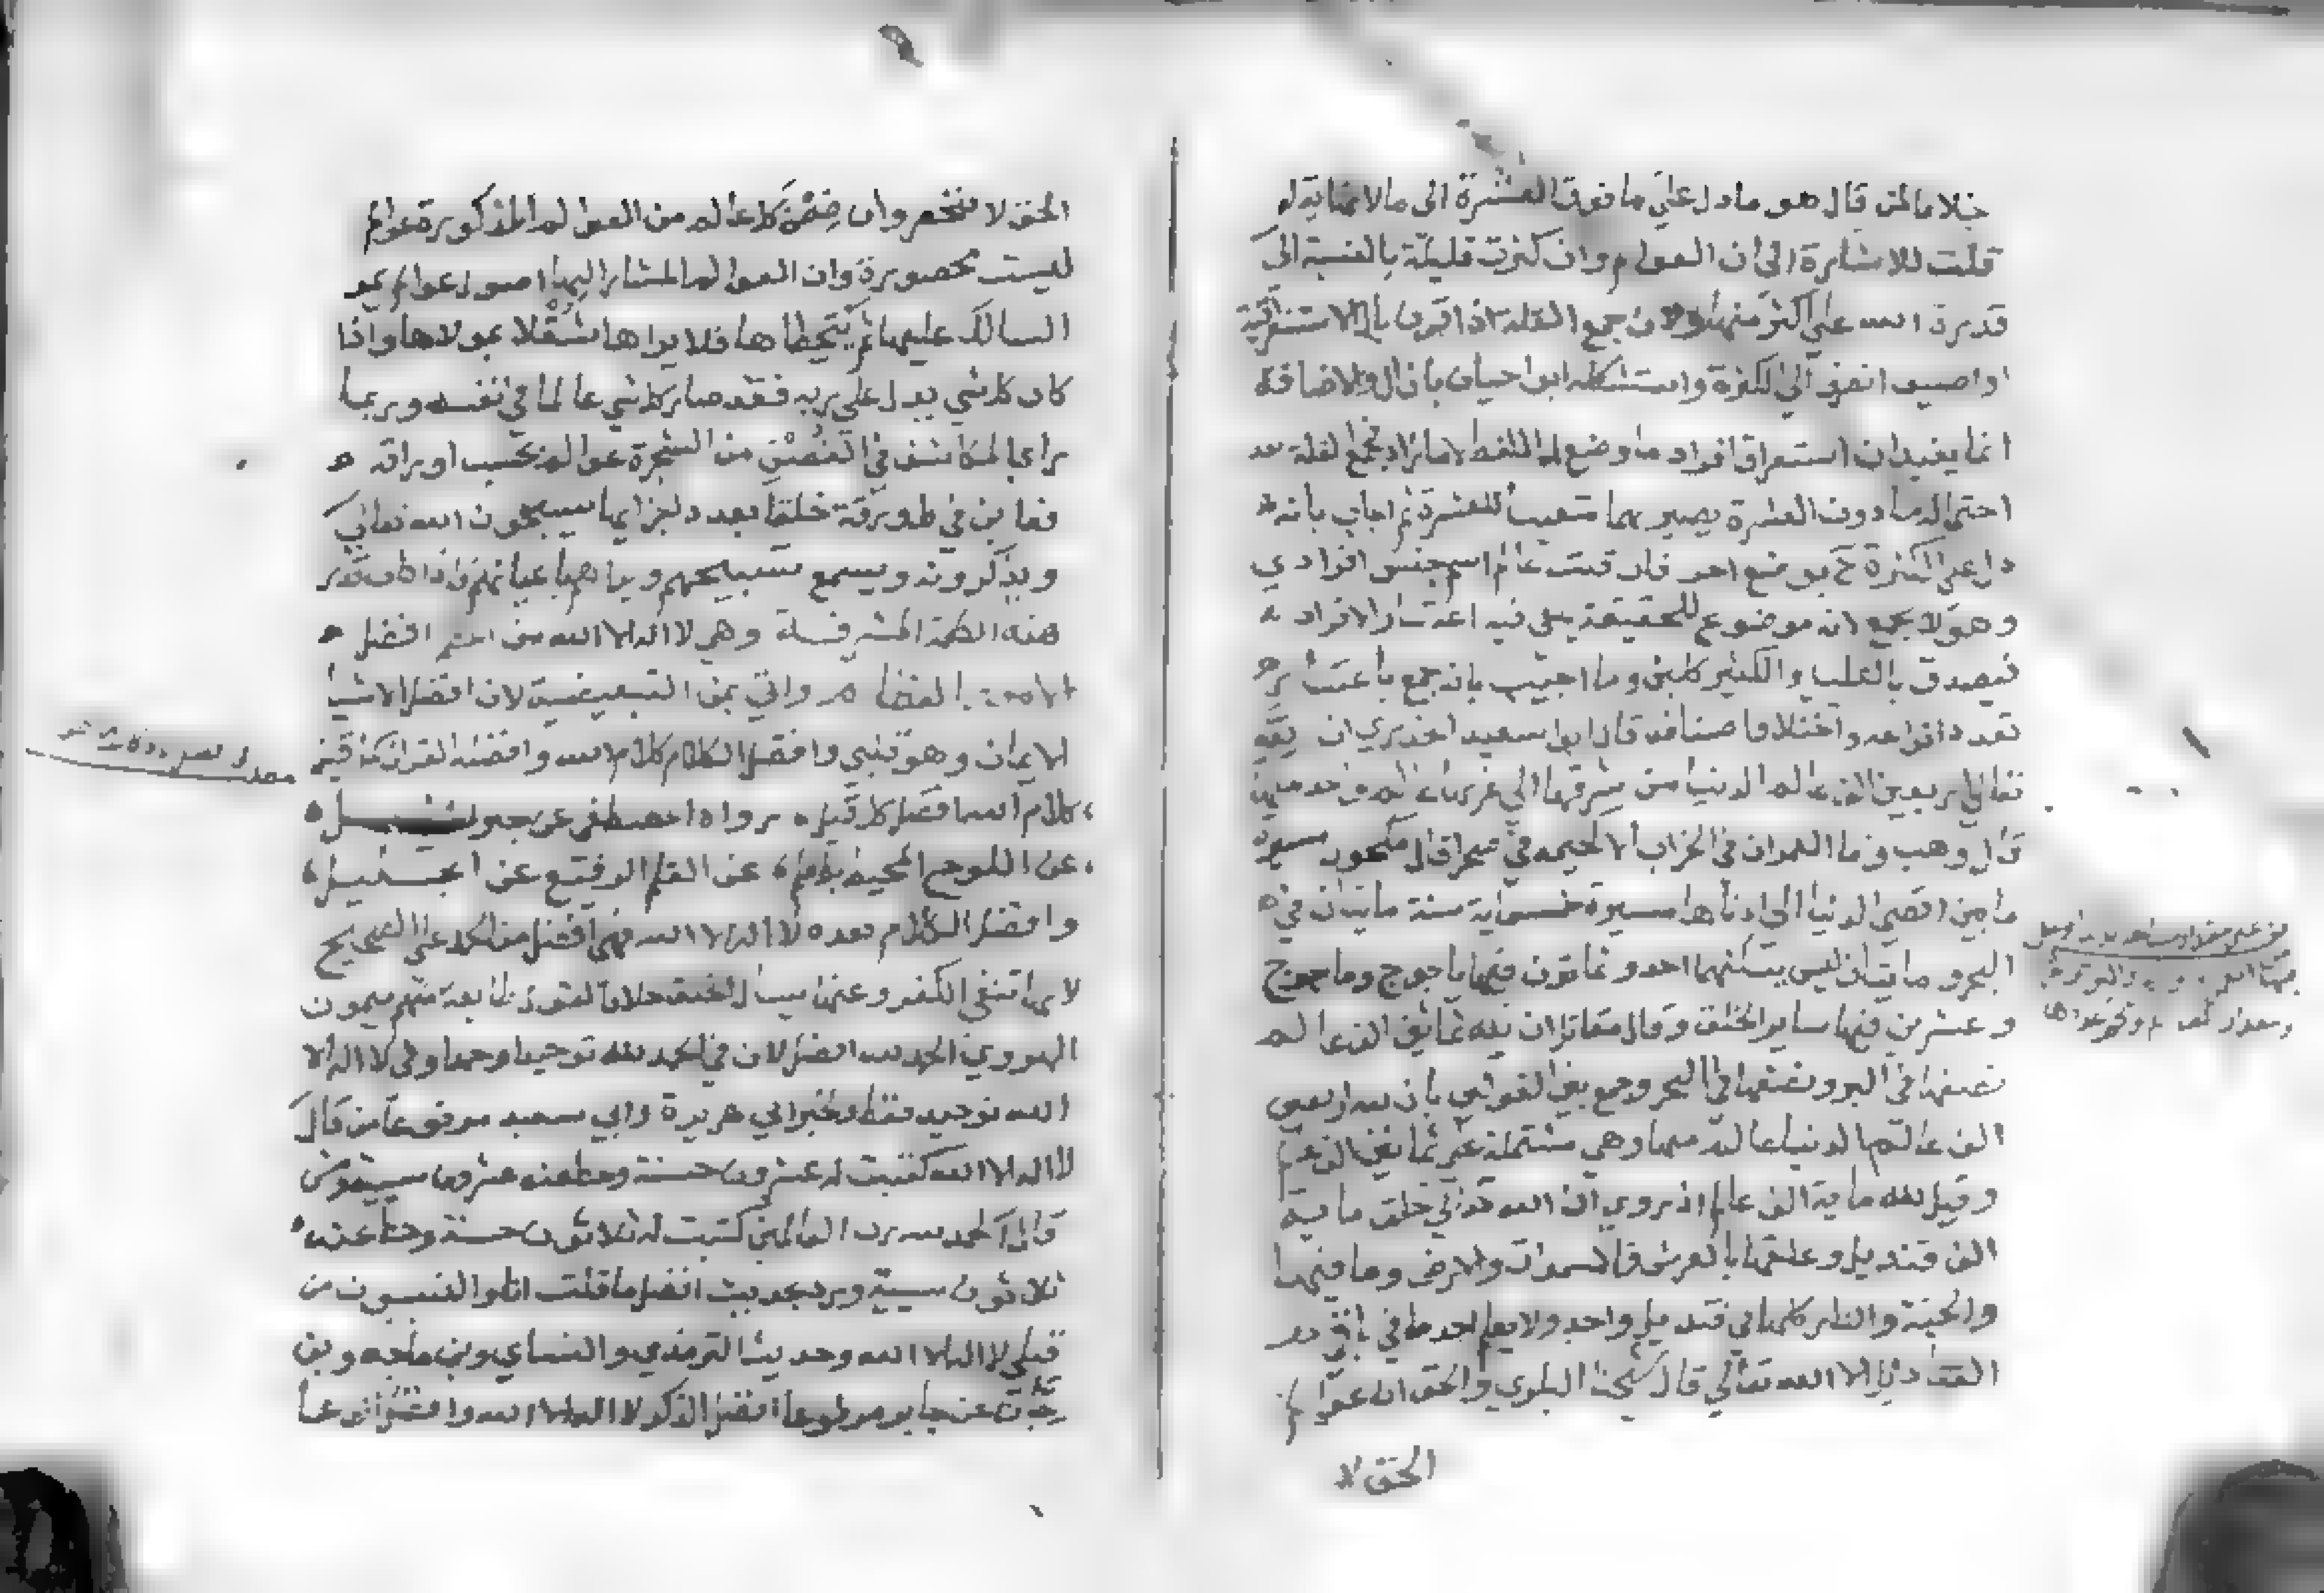 خلافا لمن قال هو ما دل على ما فوق العشرة الى ما لا نهاية له
قلت للاشارة الى ان العوالم وان كثرت قليلة بالنسبة الى
قدرة الله على اكثر منها ولان جمع القلة اذا اقترن بال الاستغراقية
او اضيف انصرف الى الكثرة واستشكله ابو حيان بان ال والاضافة
انما يفيدان استغراق افراد ما وضع له اللفظ لا ما زاد فجمع القلة بعد
احتماله ما دون العشرة يصير بهما متعينا للعشرة ثم اجاب بانه
دل على الكثرة ح بوضع اخر فان قلت عالم اسم جنس افرادي
وهو لا يجمع لانه موضوع للحقيقة فيه اعتبار الافراد
فيصدق بالقليل والكثير كلبن وما اجيب بانه جمع باعتبار
تعدد انواعه واختلاف اصنافه قال ابو سعيد الخدري ان لله
تعالى اربعين الف عالم الدنيا من شرقها الى غربها عالم واحد منها
قال وهب وما العمران في الخراب الا كخيمة في صحرا قال مكحول مسيرة
ما بين اقصى الدنيا الى ادناها مسيرة خمسماية سنة مايتان في
البحر ومايتان ليس يسكنهما احد وثمانون فيها ياجوج وماجوج
وعشرين فيها ساير الخلق وقال مقاتل ان لله ثمانين الف عالم
نصفها في البر ونصفها في البحر وجمع بين القولين بان لله اربعين
الف عالم الدنيا عالم منها وهي مشتملة على ثمانين الف عالم
وقيل لله ماية الف عالم اذ روي ان الله تعالى خلق ماية
الف قنديل وعلقها بالعرش فالسموات والارض وما فيهما
والجنة والنار كلها في قنديل واحد ولا يعلم احد ما في باقي
القناديل الا الله تعالى قال شيخنا البلوي والحق ان عوالم
الحق لا
الحق لا تنحصر وان ضمن كل عالم من العوالم المذكورة عوالم
ليست محصورة وان العوالم المشار اليها اصول عوالم يمر
السالك عليها ثم يتخطاها فلا يراها شغلا بمولاها واذا
كان كل شي يدل على ربه فقد صار كل شي عالما في نفسه وربما
راى المكاشف في الغصن من الشجرة عوالم بحسب اوراقه
فعاين في كل ورقة خلقا بعدد اجزايها يسبحون الله تعالى
ويذكرونه ويسمع تسبيحهم ويراهم باعيانهم واذا كان قدر
هذه الكلمة المشرفة وهي لا اله الا الله من اعظم افضل
واتى بمن التبعيضية لان افضل الاشيا
الايمان وهو قلبي وافضل الكلام كلام الله وافضله القران كما قيل
كلام الله افضل كل قيل رواه المصطفى عن جبرئيل
عن اللوح المحيط بكل علم عن القلم الرفيع عن الجليل
وافضل الكلام بعده لا اله الا الله فهي افضل من الحمد على الصحيح
لانها تنفي الكفر وعنها يسال الخلق خلافا لقول طايفة منهم ميمون
الهروي الحمد لله افضل لان في الحمد لله توحيدا وحمدا وفي لا اله الا
الله توحيد فقط ولخبر ابي هريرة وابي سعيد مرفوعا من قال
لا اله الا الله كتبت له عشرون حسنة وحط عنه عشرون سيية ومن
قال الحمد لله رب العالمين كتبت له ثلاثون حسنة وحط عنه
ثلاثون سيية ويرد بحديث افضل ما قلت انا والنبيون من
قبلي لا اله الا الله وحديث الترمذي والنساي وبن ماجه وبن
حبان عن جابر مرفوعا افضل الذكر لا اله الا الله وافضل الدعا